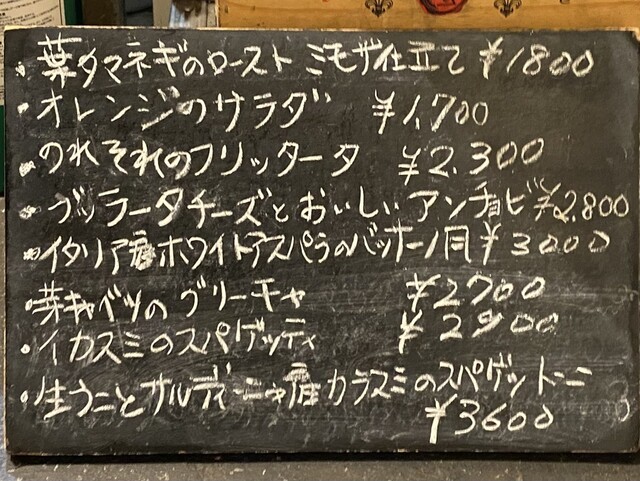 ・葉タマネギのロースト ミモザ仕立て ¥1800
・オレンジのサラダ ¥1,700
・のれそれのフリッタータ ¥2.300
・ブッラータチーズとおいしいアンチョビ ¥2.800
・イタリア産ホワイトアスパラのバッサーノ風 ¥3000
・芽キャベツのグリーチャ ¥2700
・イカスミのスパゲッティ ¥2900
・生うにとサルディーニャ産カラスミのスパゲットーニ
¥3600